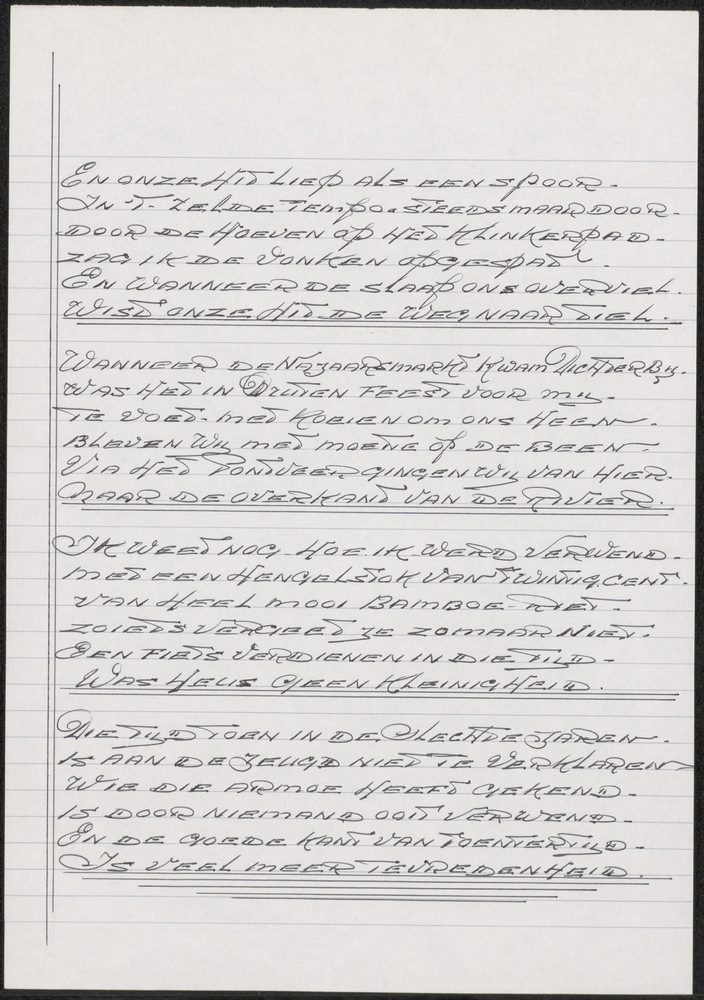 En onze hit liep als een spoor.
In 't zelfde tempo. steeds maar door.
Door de hoeven op het klinkerpad.
zag ik de vonken opgespat.
En wanneer de slaap ons overviel.
Wist onze hit de weg naar Tiel.
Wanneer de Najaarsmarkt kwam dichterbij.
was het in Druten feest voor mij.
Te voet. met koeien om ons heen.
Bleven wij met moeite op de been.
Via het pontveer gingen wij van hier.
Naar de overkant van de rivier.
Ik weet nog hoe ik werd verwend.
met een hengelstok van twintig cent.
van heel mooi bamboe-riet.
zoiets vergeet je zomaar niet.
Een fiets verdienen in die tijd.
Was heus geen kleinigheid.
Die tijd toen in de slechte jaren.
is aan de jeugd niet te verklaren
Wie die armoe heeft gekend.
is door niemand ooit verwend.
En de goede kant van toentertijd.
Is veel meer tevredenheid.